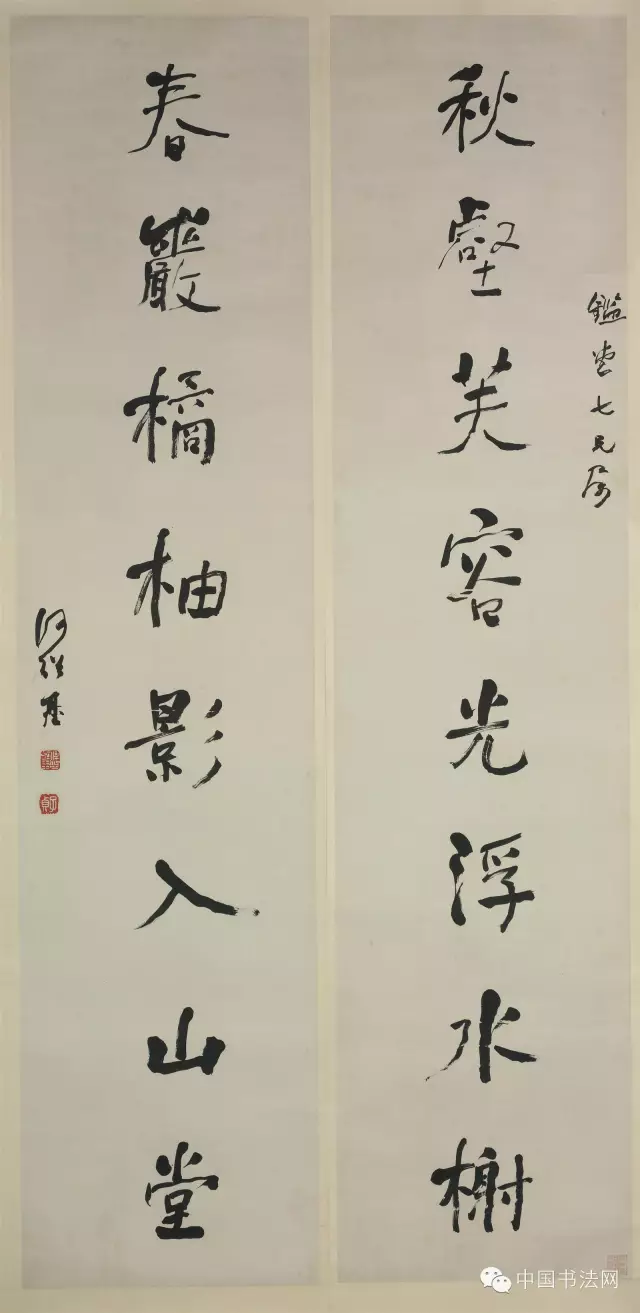 鑑堂七兄属
秋壑芙容光浮水榭
春巖橘柚影入山堂
何紹基
子貞
中国书法网